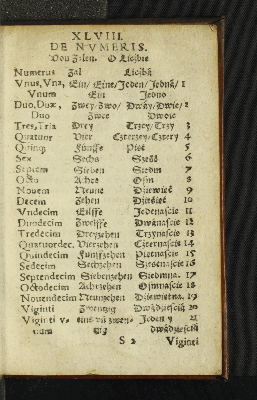 XLVIII.
DE NVMERIS.
Von Zalen. O Liczbie
Numerus Zal Liczbá
Vnus, Vna, Ein/ Eine/ Jeden/ Jedná/ 1
Vnum Ein Jedno
Duo, Duæ, Zwey/ Zwo/ Dwáy/ Dwie/ 2
Duo Zwee Dwoie
Tres, Tria Drey Trzey/ Trzy 3
Quatuor Vier Czterzey/ Cztery 4
Quinq; Fünffe Pięć 5
Sex Sechs Sześć 6
Septem Sieben Siedm 7
Octo Achte Ośm 8
Nouem Neune Dźiewięć 9
Decem Zehen Dźieśięć 10
Vndecim Eilffe Jedenaście 11
Duodecim Zwelffe Dwánaście 12
Tredecim Dreyzehen Trzynaście 13
Quatuordec. Vierzehen Czternaście 14
Quindecim Fünffzehen Piętnaście 15
Sedecim Sechzehen Szesnaście 16
Septendecim Siebenzehen Siedmna. 17
Octodecim Achtzehen Ośmnaście 18
Nouendecim Neunzehen Dźiewiętna. 19
Viginti Zwentzig Dwádźieściá 20
Viginti v- eins vñ zwen- Jeden y 21
num tzig dwádźieściá
S 2 Viginti